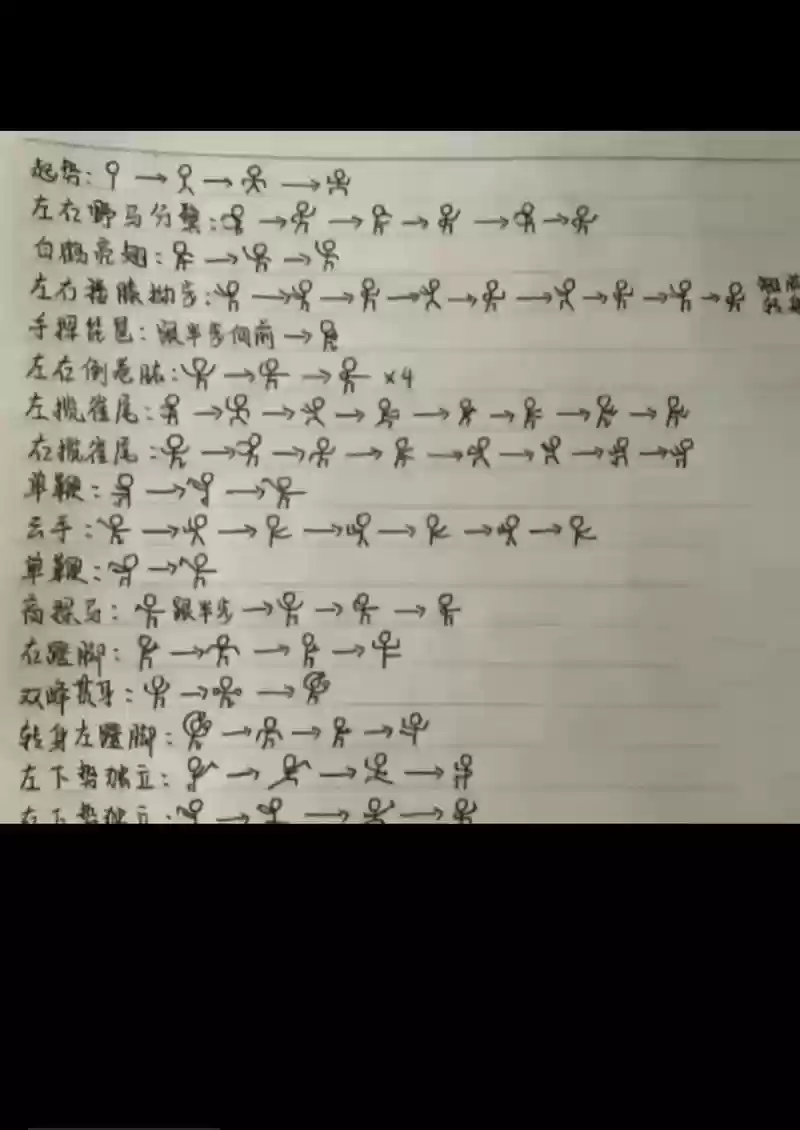 起势:
左右野马分鬃:
白鹤亮翅:
左右搂膝拗步:
手挥琵琶: 跟半步向前
左右倒卷肱: ×4
左揽雀尾:
右揽雀尾:
单鞭:
云手:
单鞭:
高探马: 跟半步
右蹬脚:
双峰贯耳:
转身左蹬脚:
左下势独立:
右下势独立: